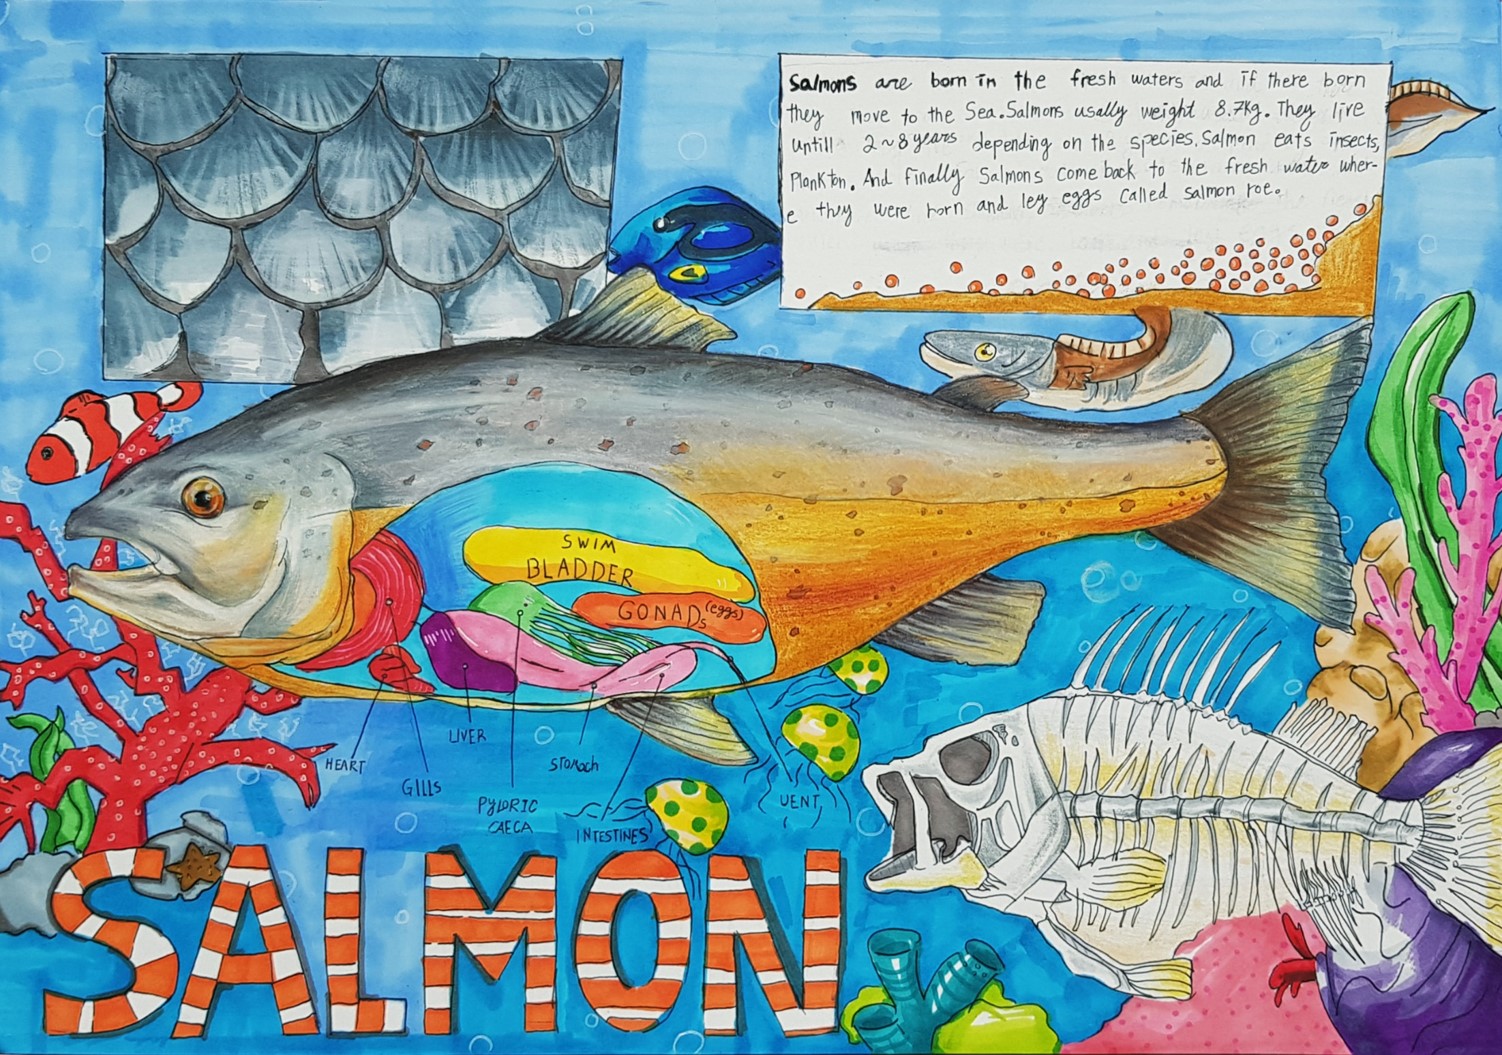 Salmons are born in the fresh waters and if there born
they move to the Sea. Salmons usally weight 8.7kg. They live
untill 2~8 years depending on the species. Salmon eats insects,
Plankton. And finally Salmons come back to the fresh water wher-
e they were born and ley eggs called salmon roe.
SWIM
BLADDER
GONADs (eggs)
HEART
GILLS
LIVER
PYLORIC
CAECA
STOMACH
INTESTINES
VENT
SALMON